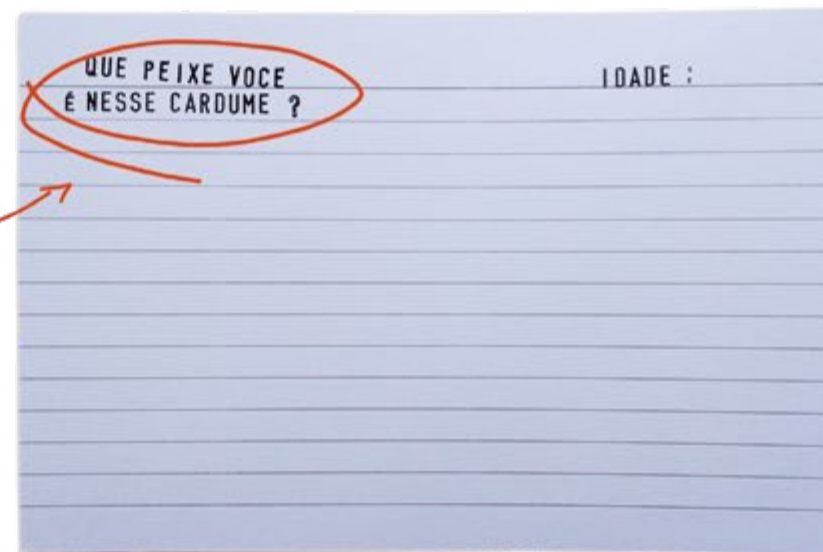 QUE PEIXE VOCE
É NESSE CARDUME ?
IDADE :